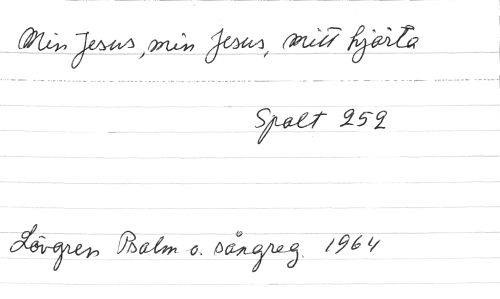 Min Jesus, min Jesus, mitt hjärta
Spalt 252
Lövgren Psalm o. sångreg. 1964